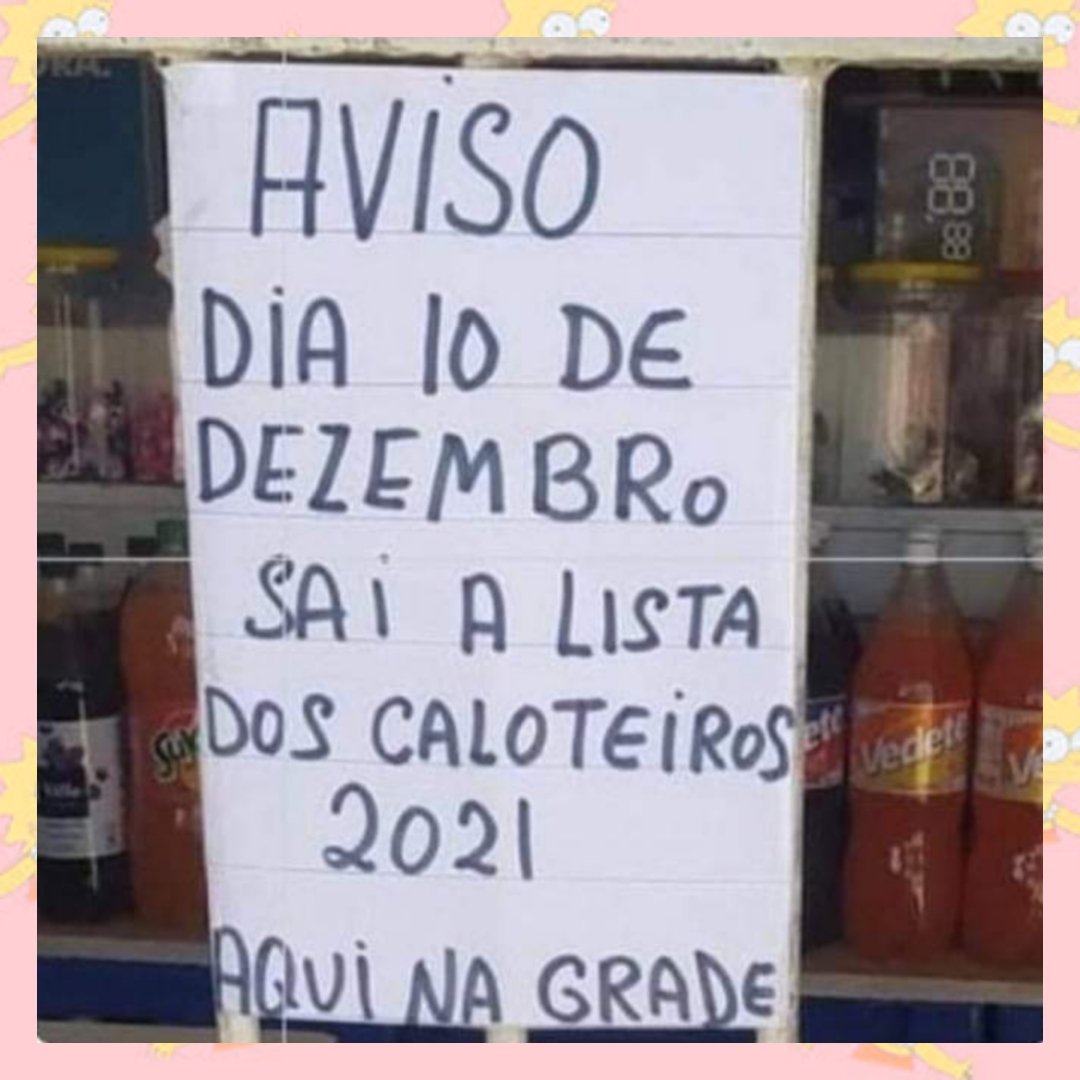 AVISO
DIA 10 DE
DEZEMBRO
SAI A LISTA
DOS CALOTEIROS
2021
AQUI NA GRADE
Vedete